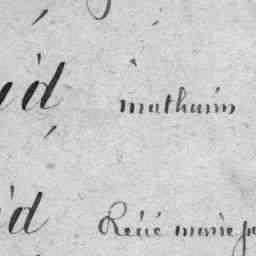 id mathurin
id René marie